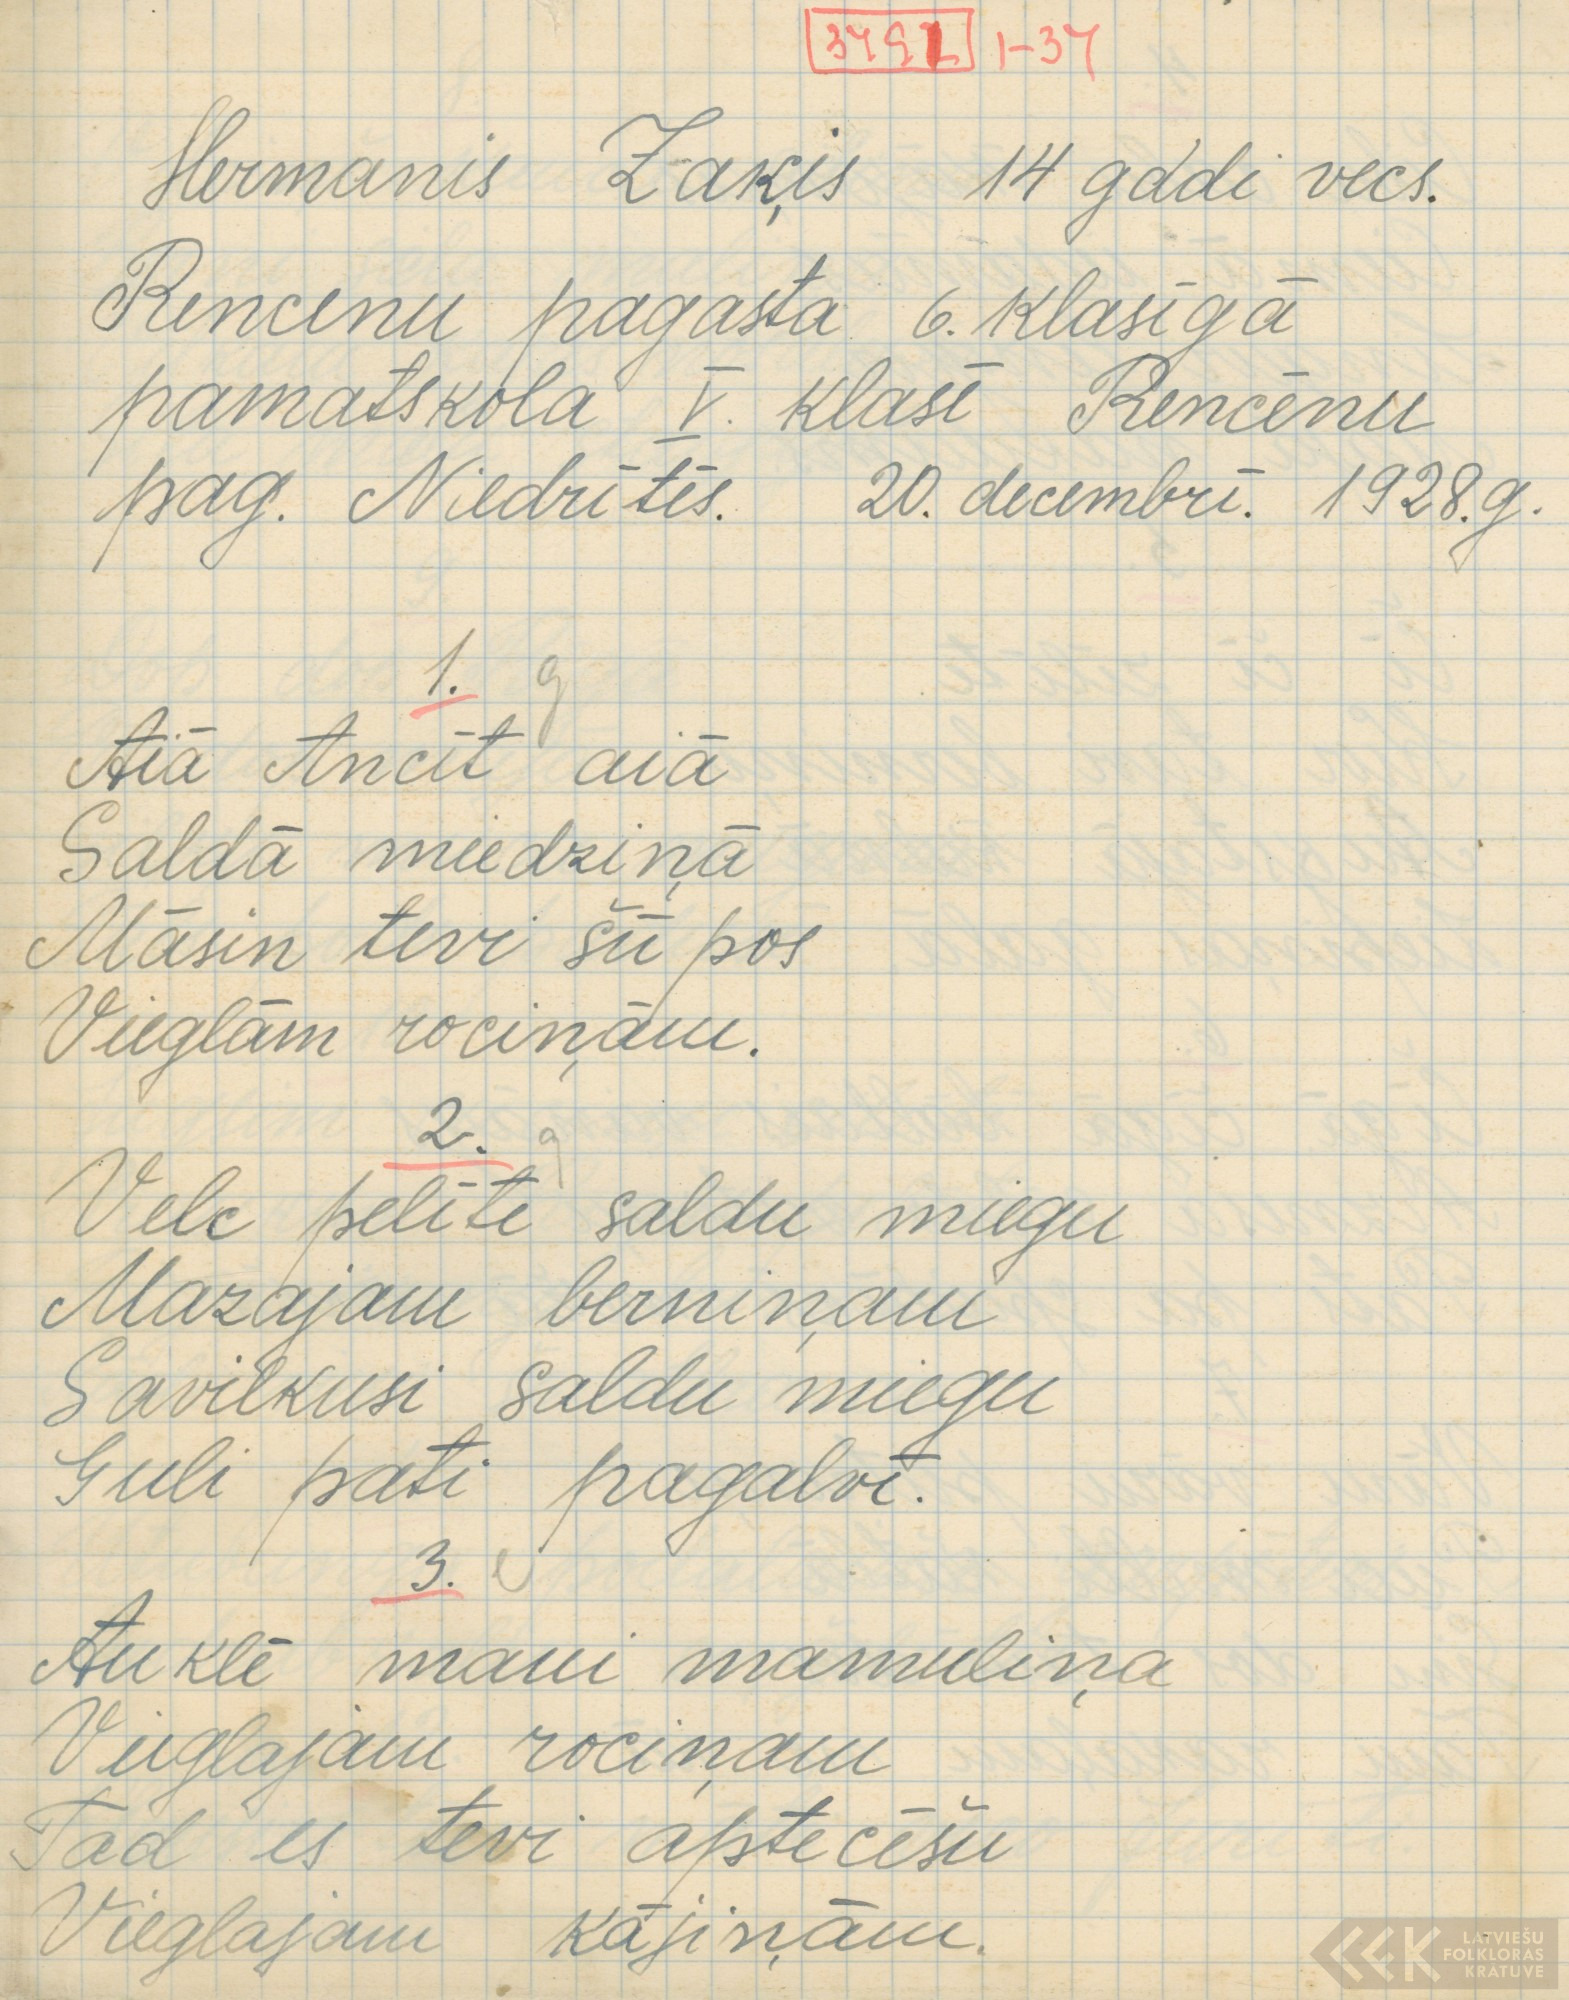 1-37
Hermanis Zaķis 14 gadi vecs.
Rencenu pagasta 6. klasīgā
pamatskola V. klasē Rencēnu
pag. Niedrītēs. 20. decembrī. 1928.g.
1. g
Aiā Ancīt aiā
Saldā miedziņā
Māsin tevi šū pos
Vieglām rociņām.
2. g
Velc pelīte saldu miegu
Mazajam berniņam
Savilkusi saldu miegu
Guli pati pagalvī.
3.
Auklē mani mamuliņa
Vieglajām rociņam
Tad es tevi aptecēšu
Vieglajam kājiņām.
LATVIEŠU
FOLKLORAS
KRATUVE